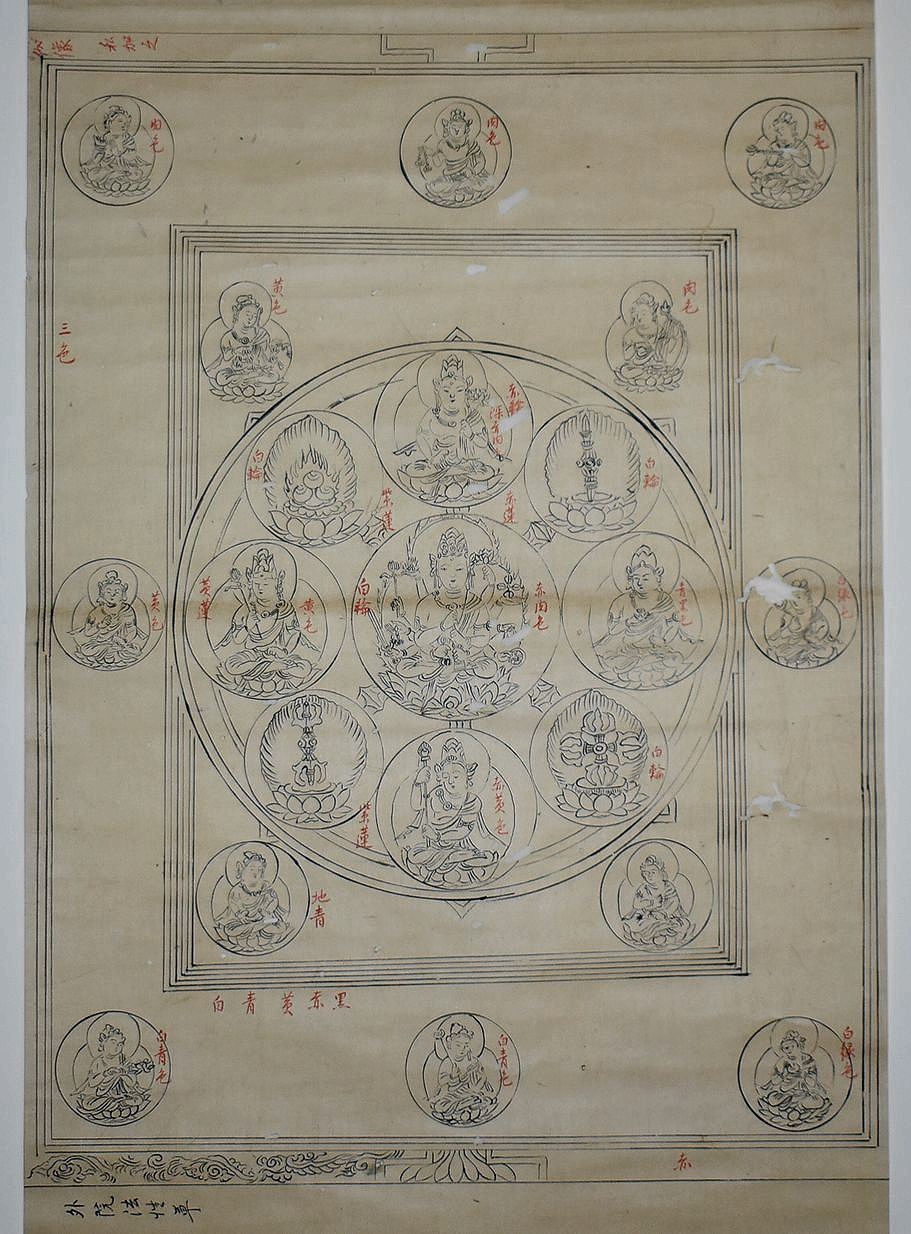 肉色
肉色
肉色
黄色
肉色
三色
赤輪
深赤肉
白輪
白輪
紫蓮
赤蓮
黄蓮
黄色
白輪
赤肉色
青黒色
黄色
白緑色
白輪
紫蓮
赤黄色
地青
白 青 黄 赤 黒
白青色
白青色
白緑色
赤
外院法性